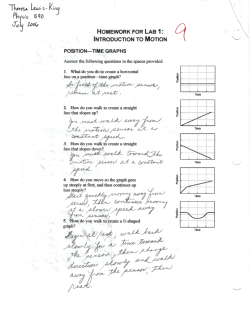 Theresa Lewis-King
Physics 690
July 2006
9
HOMEWORK FOR LAB 1:
INTRODUCTION TO MOTION
POSITION—TIME GRAPHS
Answer the following questions in the spaces provided.
1. What do you do to create a horizontal
line on a position – time graph?
In front of the motion sensor,
remain at rest.
2. How do you walk to create a straight
line that slopes up?
You must walk away from
the motion sensor at a
constant speed.
3. How do you walk to create a straight
line that slopes down?
You must walk toward the
motion sensor at a constant
speed.
4. How do you move so the graph goes
up steeply at first, and then continues up
less steeply?
Start quickly, moving away from
sensor, then continue moving
at a slower speed away
from sensor.
5. How do you walk to create a U-shaped
graph?
Begin at rest, walk
slowly for a time toward
the sensor, then change
direction slowly and walk
away from the sensor, then
rest.
Position
Time
Position
Time
Position
Time
Position
Time
Position
Time